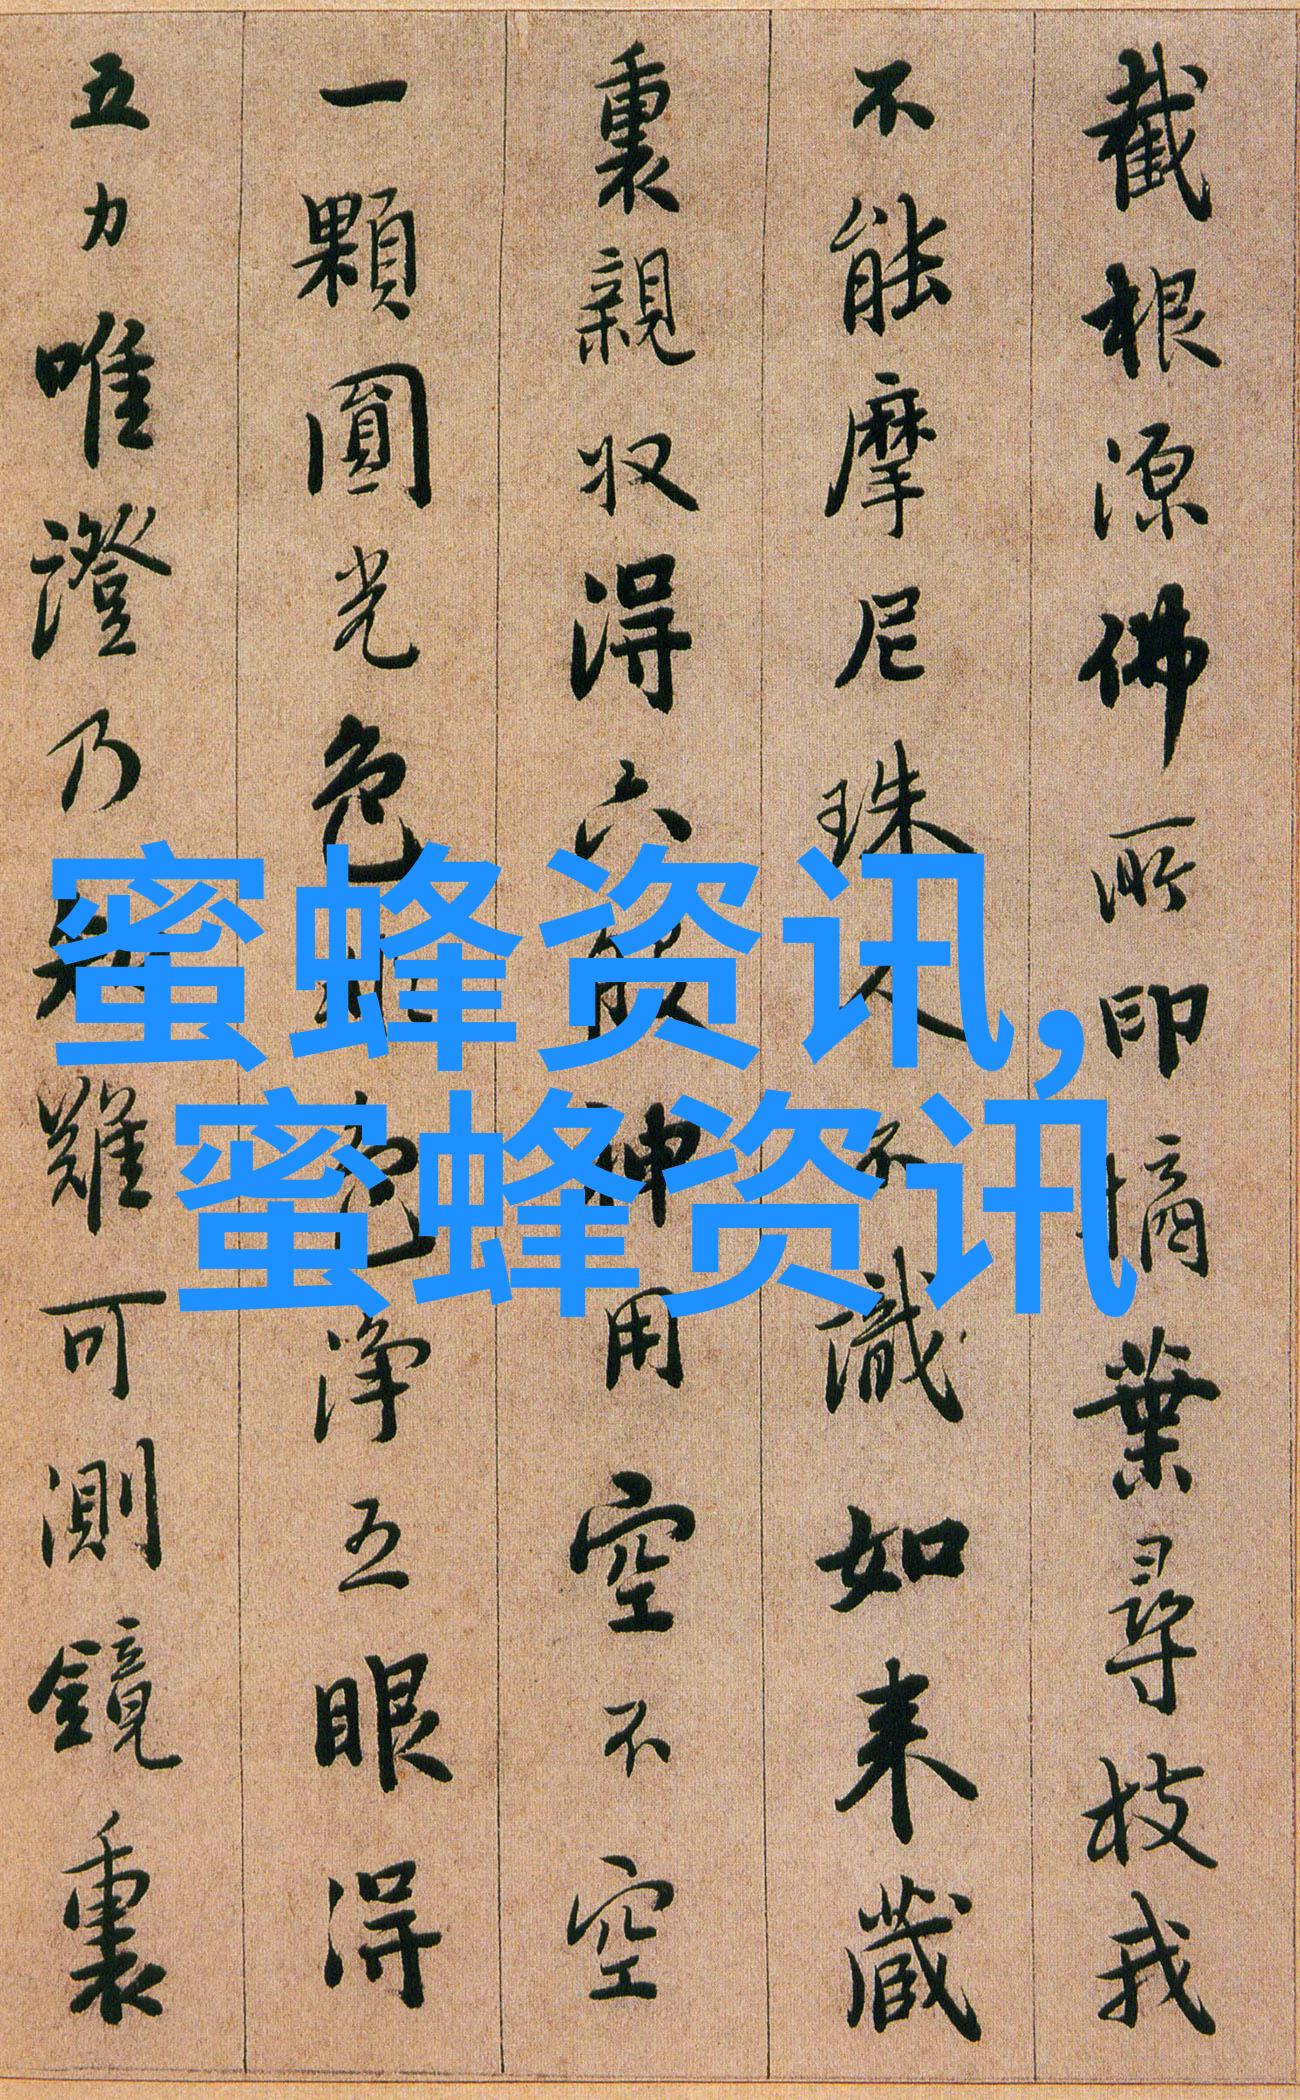 截根源佛所印摘葉尋枝我
不能摩尼珠人不識如来藏
裏親收得六般神用空不空
一顆圓光色非色淨五眼得
五力唯證乃知難可測鏡裏
蜜蜂资讯,
蜜蜂资讯